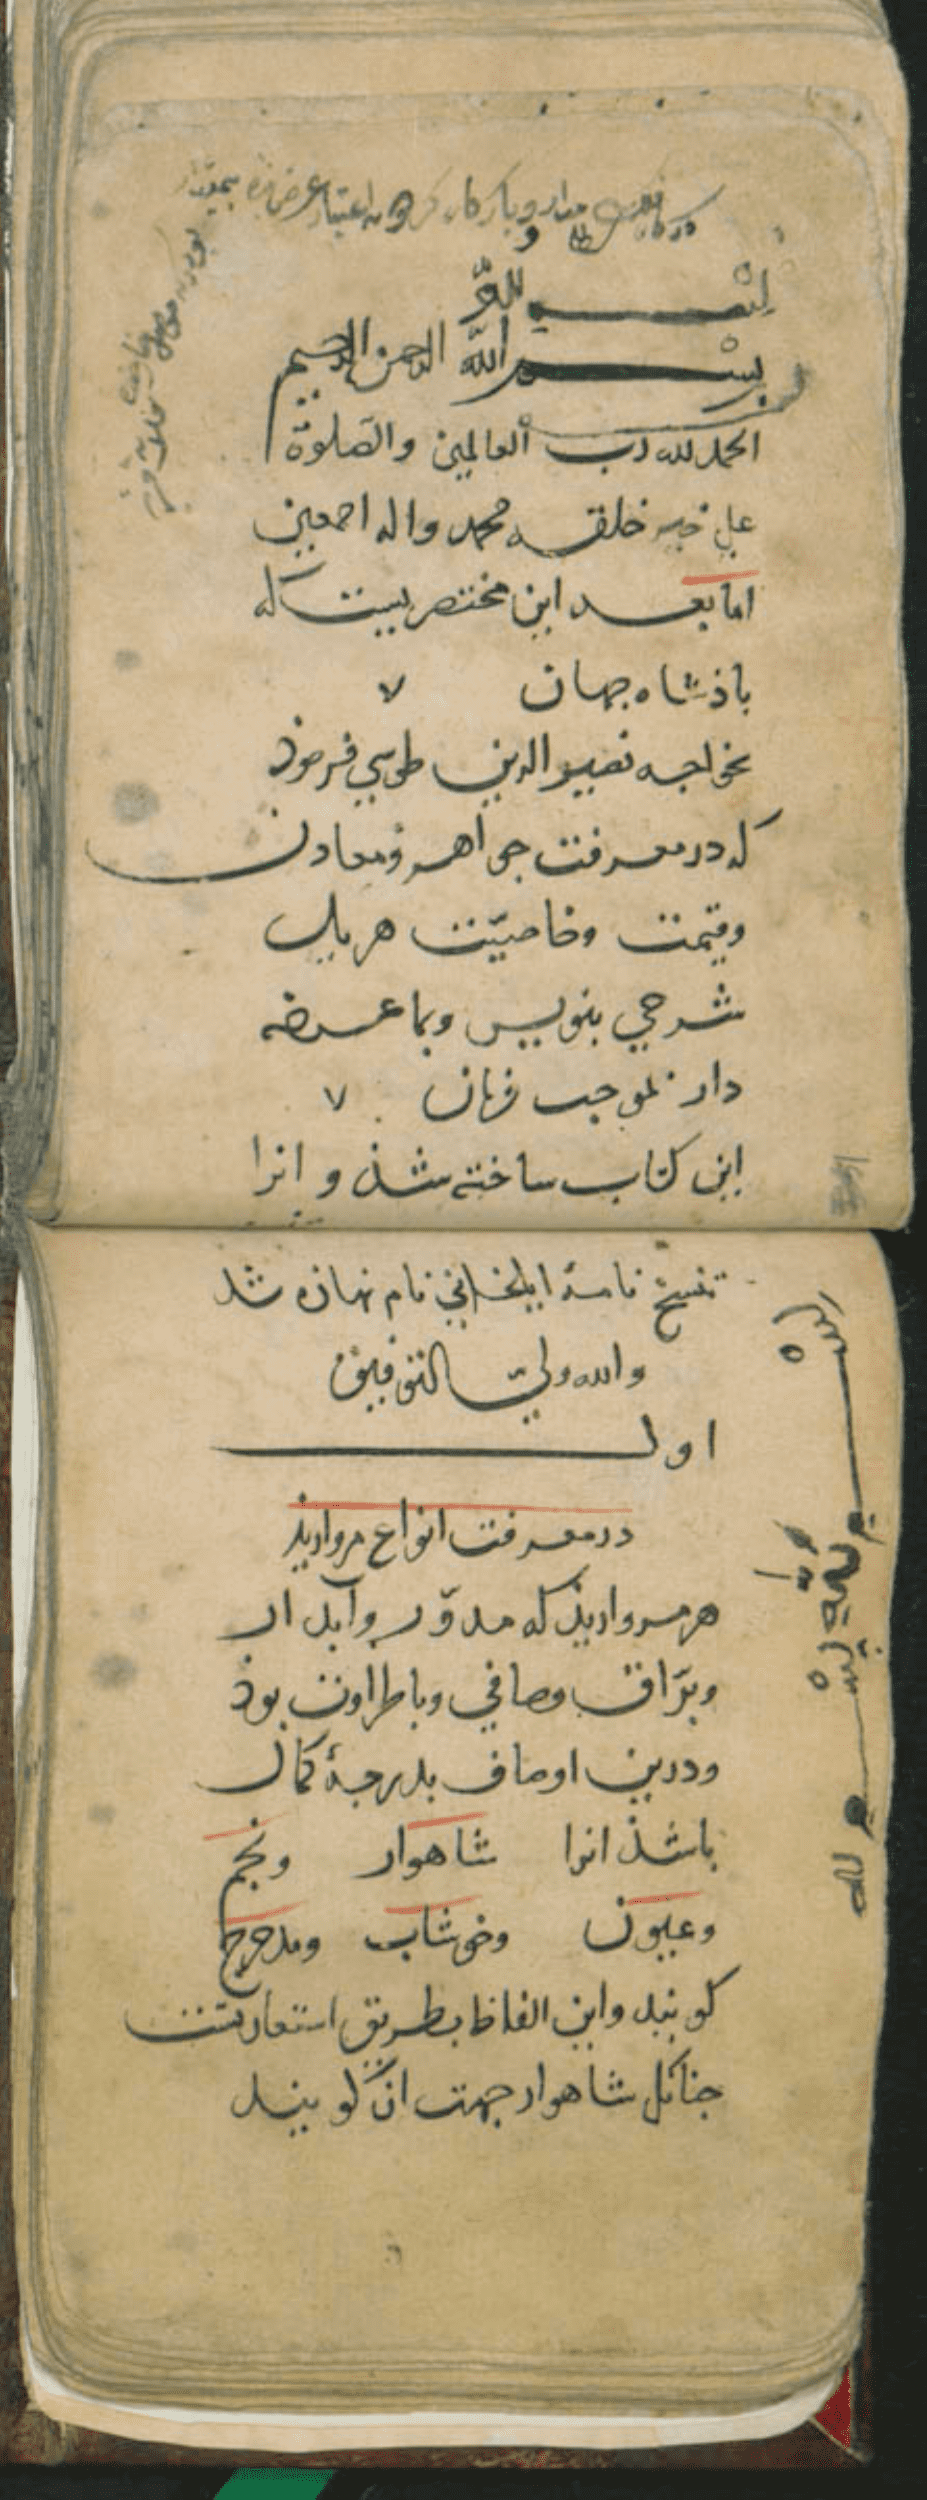 بسم الله
بسم الله الرحمن الرحيم
الحمد لله رب العالمين والصلوة
علي خير خلقه محمد واله اجمعين
اما بعد اين مختصريست كه
باذشاه جهان ٧
بخواجه نصير الدين طوسي فرموذ
كه در معرفت جواهر ومعادن
وقيمت وخاصيّت هر يك
شرحي بنويس وبما عرضه
دار بموجب فرمان ٧
اين كتاب ساخته شذ و انرا
تنسخ نامۀ ايلخاني نام نهاذه شد
والله وليّ التوفيق
اول
در معرفت انواع مرواريذ
هر مرواريذ كه مدوّر وآبدار
وبرّاق وصافي وباطراوت بوذ
ودرين اوصاف بدرجۀ كمال
باشذ انرا شاهوار ونجم
وعيون وخوشاب ومدحرج
كويند واين الفاظ بطريق استعارتست
جنانكه شاهوار جهت ان كويند